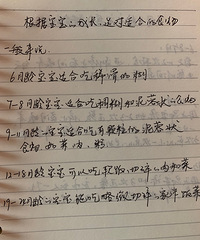 根据宝宝的成长，选对适合的食物
一般来说
6月龄宝宝适合吃稀滑的糊
7-8月龄宝宝适合吃稠糊和泥蓉状食物
9-11月龄的宝宝适合吃有颗粒的泥蓉状
食物，如菜肉、粥
12-18月龄宝宝可以吃软饭、切碎的肉和菜
19-24月龄的宝宝能吃略微切碎的家常饭菜